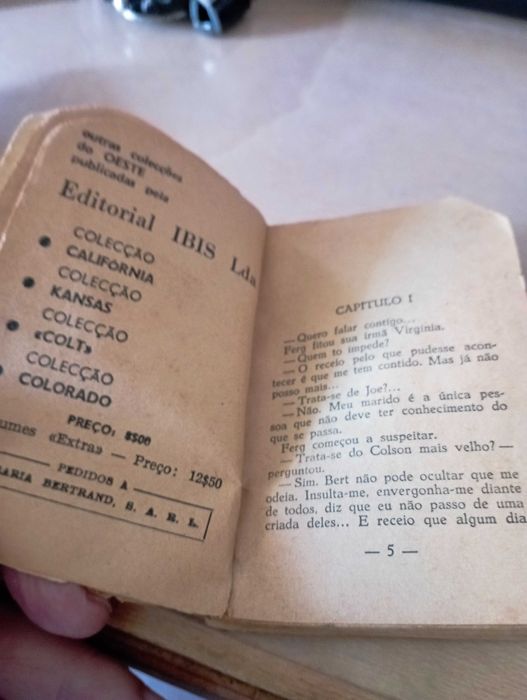 outras colecções
do OESTE
publicadas pela
Editorial IBIS Lda
COLECÇÃO
CALIFÓRNIA
COLECÇÃO
KANSAS
COLECÇÃO
«COLT»
COLECÇÃO
COLORADO
PREÇO: 8$00
umes «Extra» — Preço: 12$50
PEDIDOS A
ARIA BERTRAND, S. A. R. L.
CAPITULO I
— Quero falar contigo...
Ferg fitou sua irmã Virgínia.
— Quem to impede?
— O receio pelo que pudesse acon-
tecer é que me tem contido. Mas já não
posso mais...
— Trata-se de Joe?...
— Não. Meu marido é a única pes-
soa que não deve ter conhecimento do
que se passa.
Ferg começou a suspeitar.
— Trata-se do Colson mais velho? —
perguntou.
— Sim. Bert não pode ocultar que me
odeia. Insulta-me, envergonha-me diante
de todos, diz que eu não passo de uma
criada deles... E receio que algum dia
— 5 —